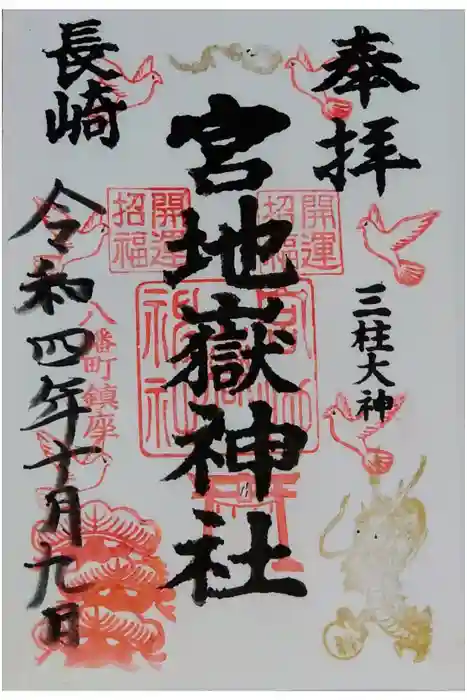 奉拝
三柱大神
宮地嶽神社
開運招福
開運招福
長崎
八幡町鎮座
令和四年十月九日